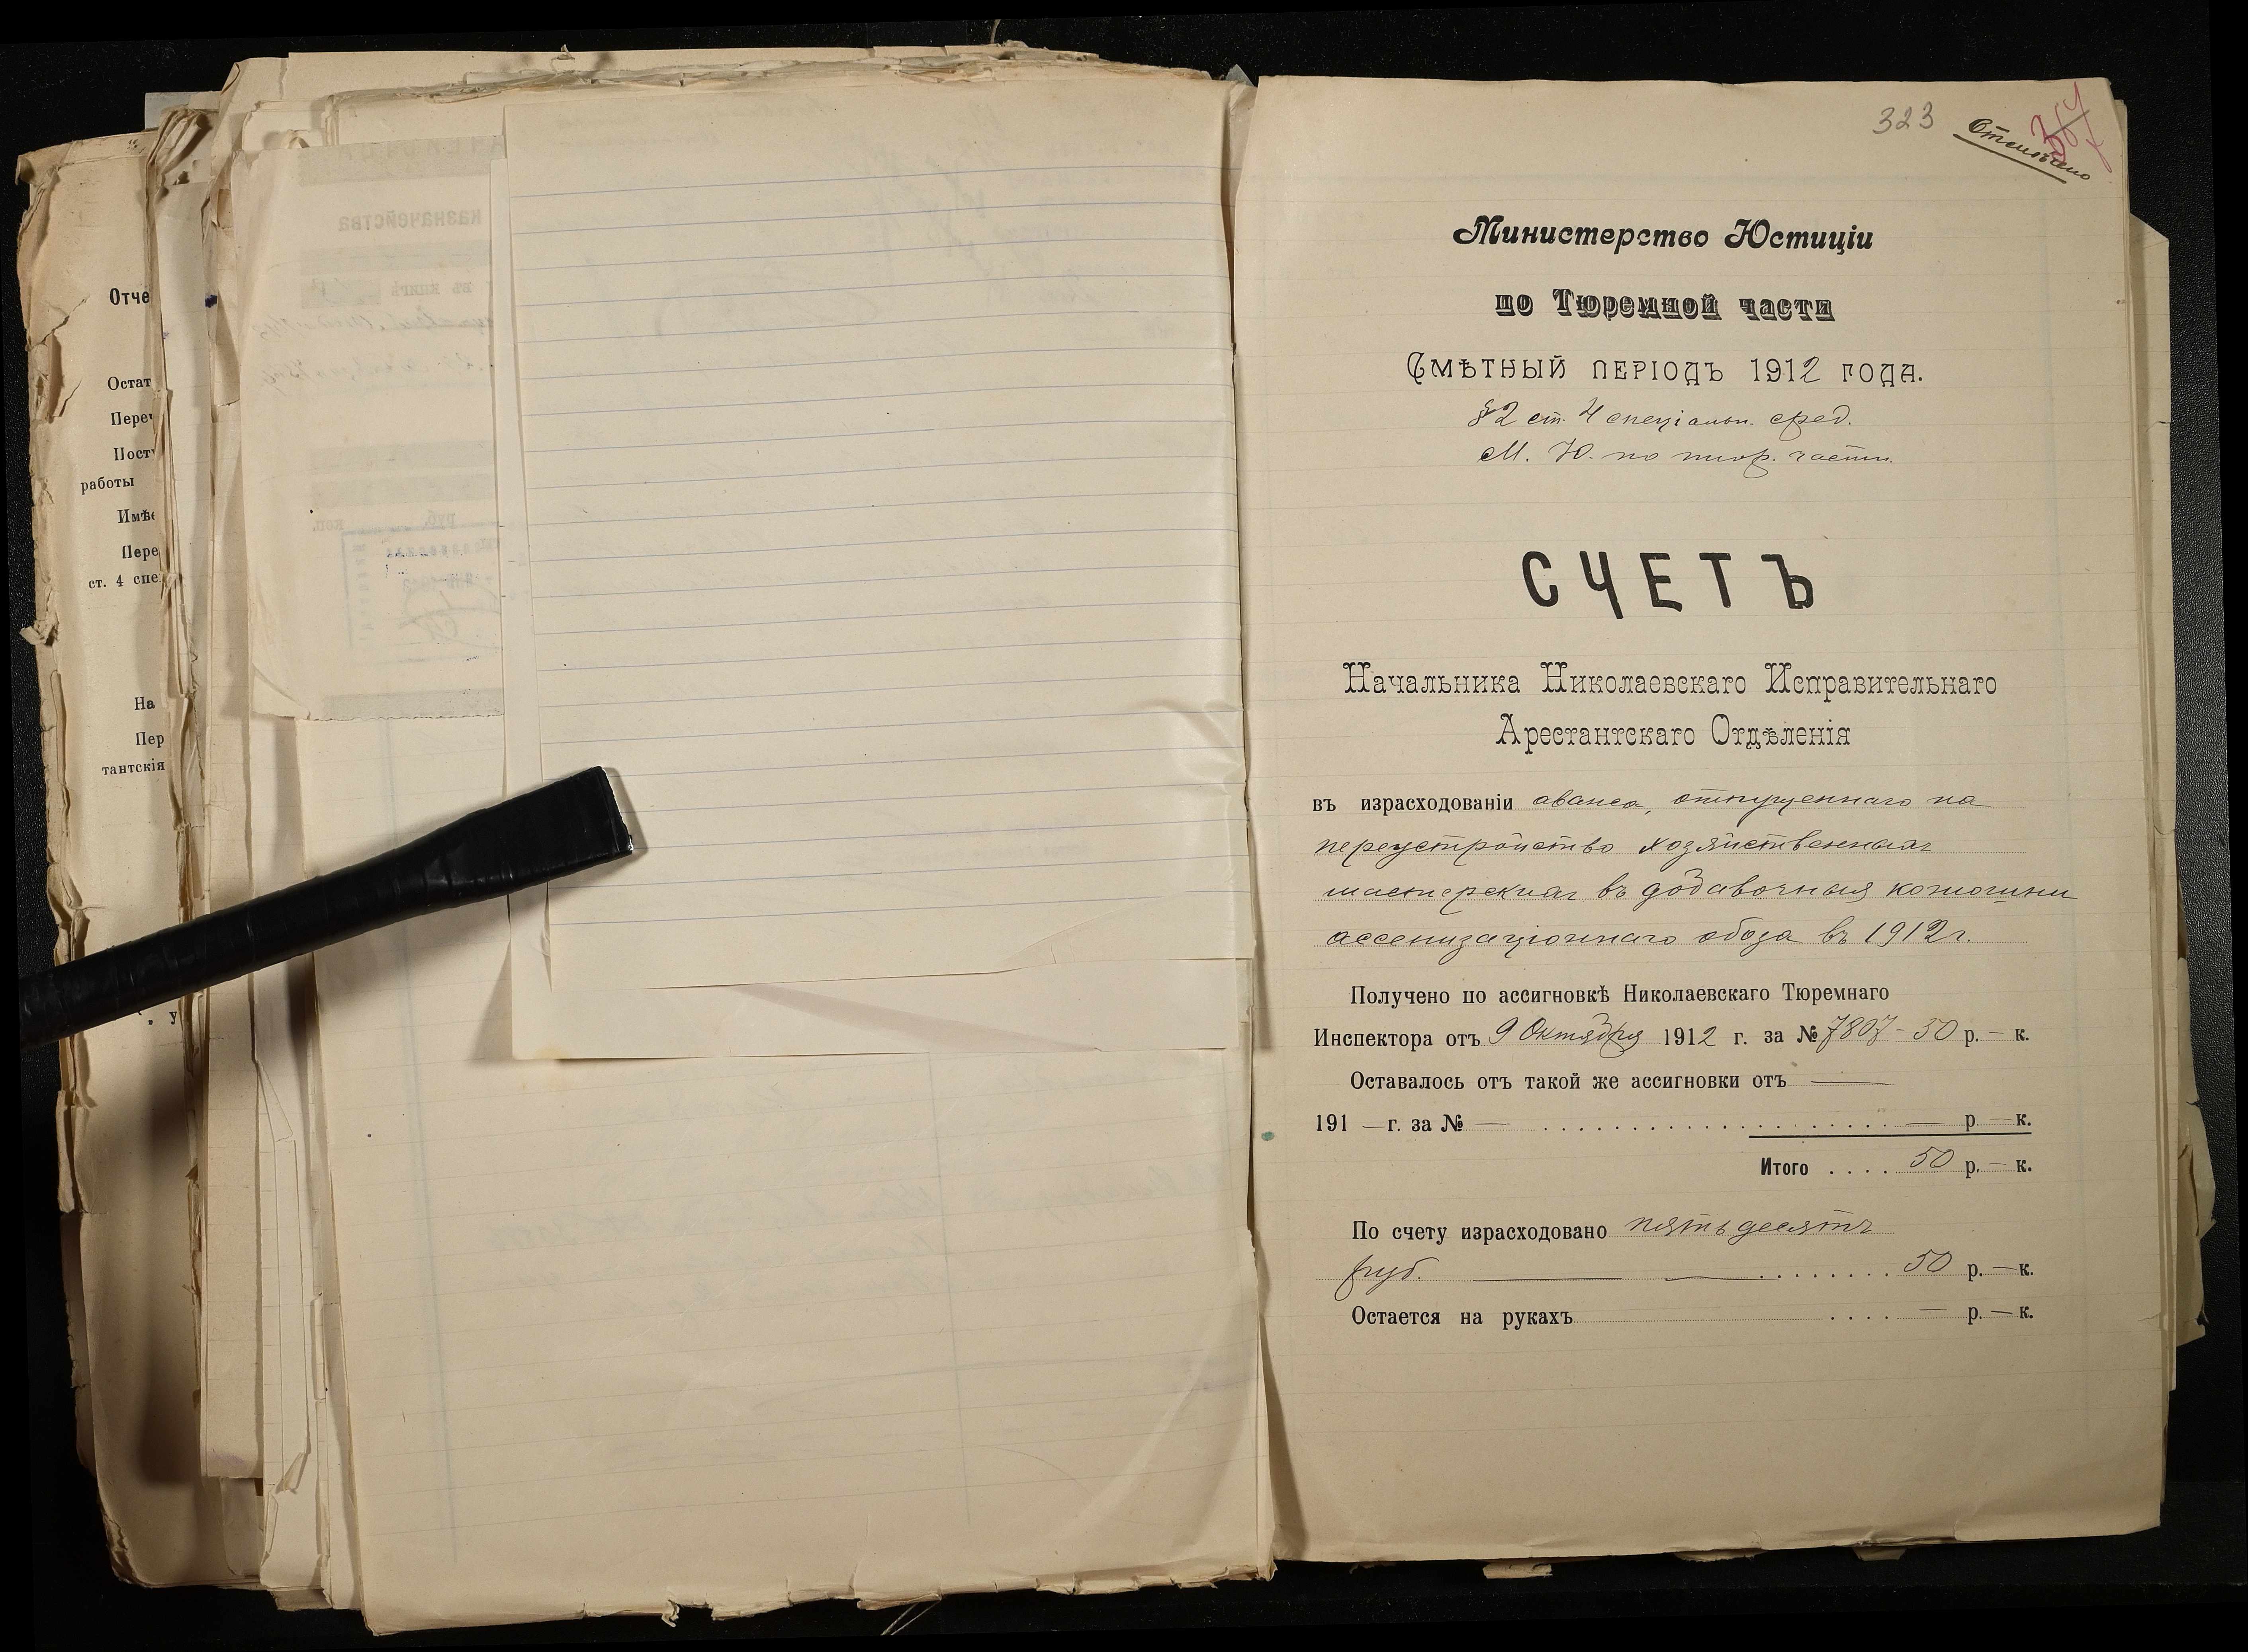 Отче
Остат
Переч
Пост
работы
Имѣе
Пере
ст. 4 спе
На
Пер
тантскія
казначейства
въ книгѣ
руб. коп.
323
Министерство Юстиціи
по Тюремной части
Смѣтный періодъ 1912 года.
§2 ст. 4 спеціальн. сред.
М. Ю. по тюр. части.
СЧЕТЪ
Начальника Николаевскаго Исправительнаго
Арестантскаго Отдѣленія
въ израсходованіи аванса, отпущеннаго на
переустройство хозяйственныхъ
мастерскихъ въ добавочныя конюшни
ассенизаціоннаго обоза въ 1912 г.
Получено по ассигновкѣ Николаевскаго Тюремнаго
Инспектора отъ 9 Октября 1912 г. за № 7807 – 50 р. – к.
Оставалось отъ такой же ассигновки отъ —
191 — г. за № — . . . . . — р — к.
Итого . . . . 50 р. – к.
По счету израсходовано пятьдесятъ
руб. — — . . . . . . . . 50 р. — к.
Остается на рукахъ . . . . — р. — к.